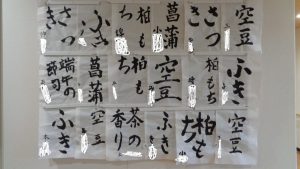 空豆
さつ
き
菖蒲
柏も
ち
ふき
さつ
き
ふき
柏もち
空豆
柏も
ち
菖蒲
端午の
節句
空豆
柏も
ち
ふき
茶の
香り
空豆
ふき